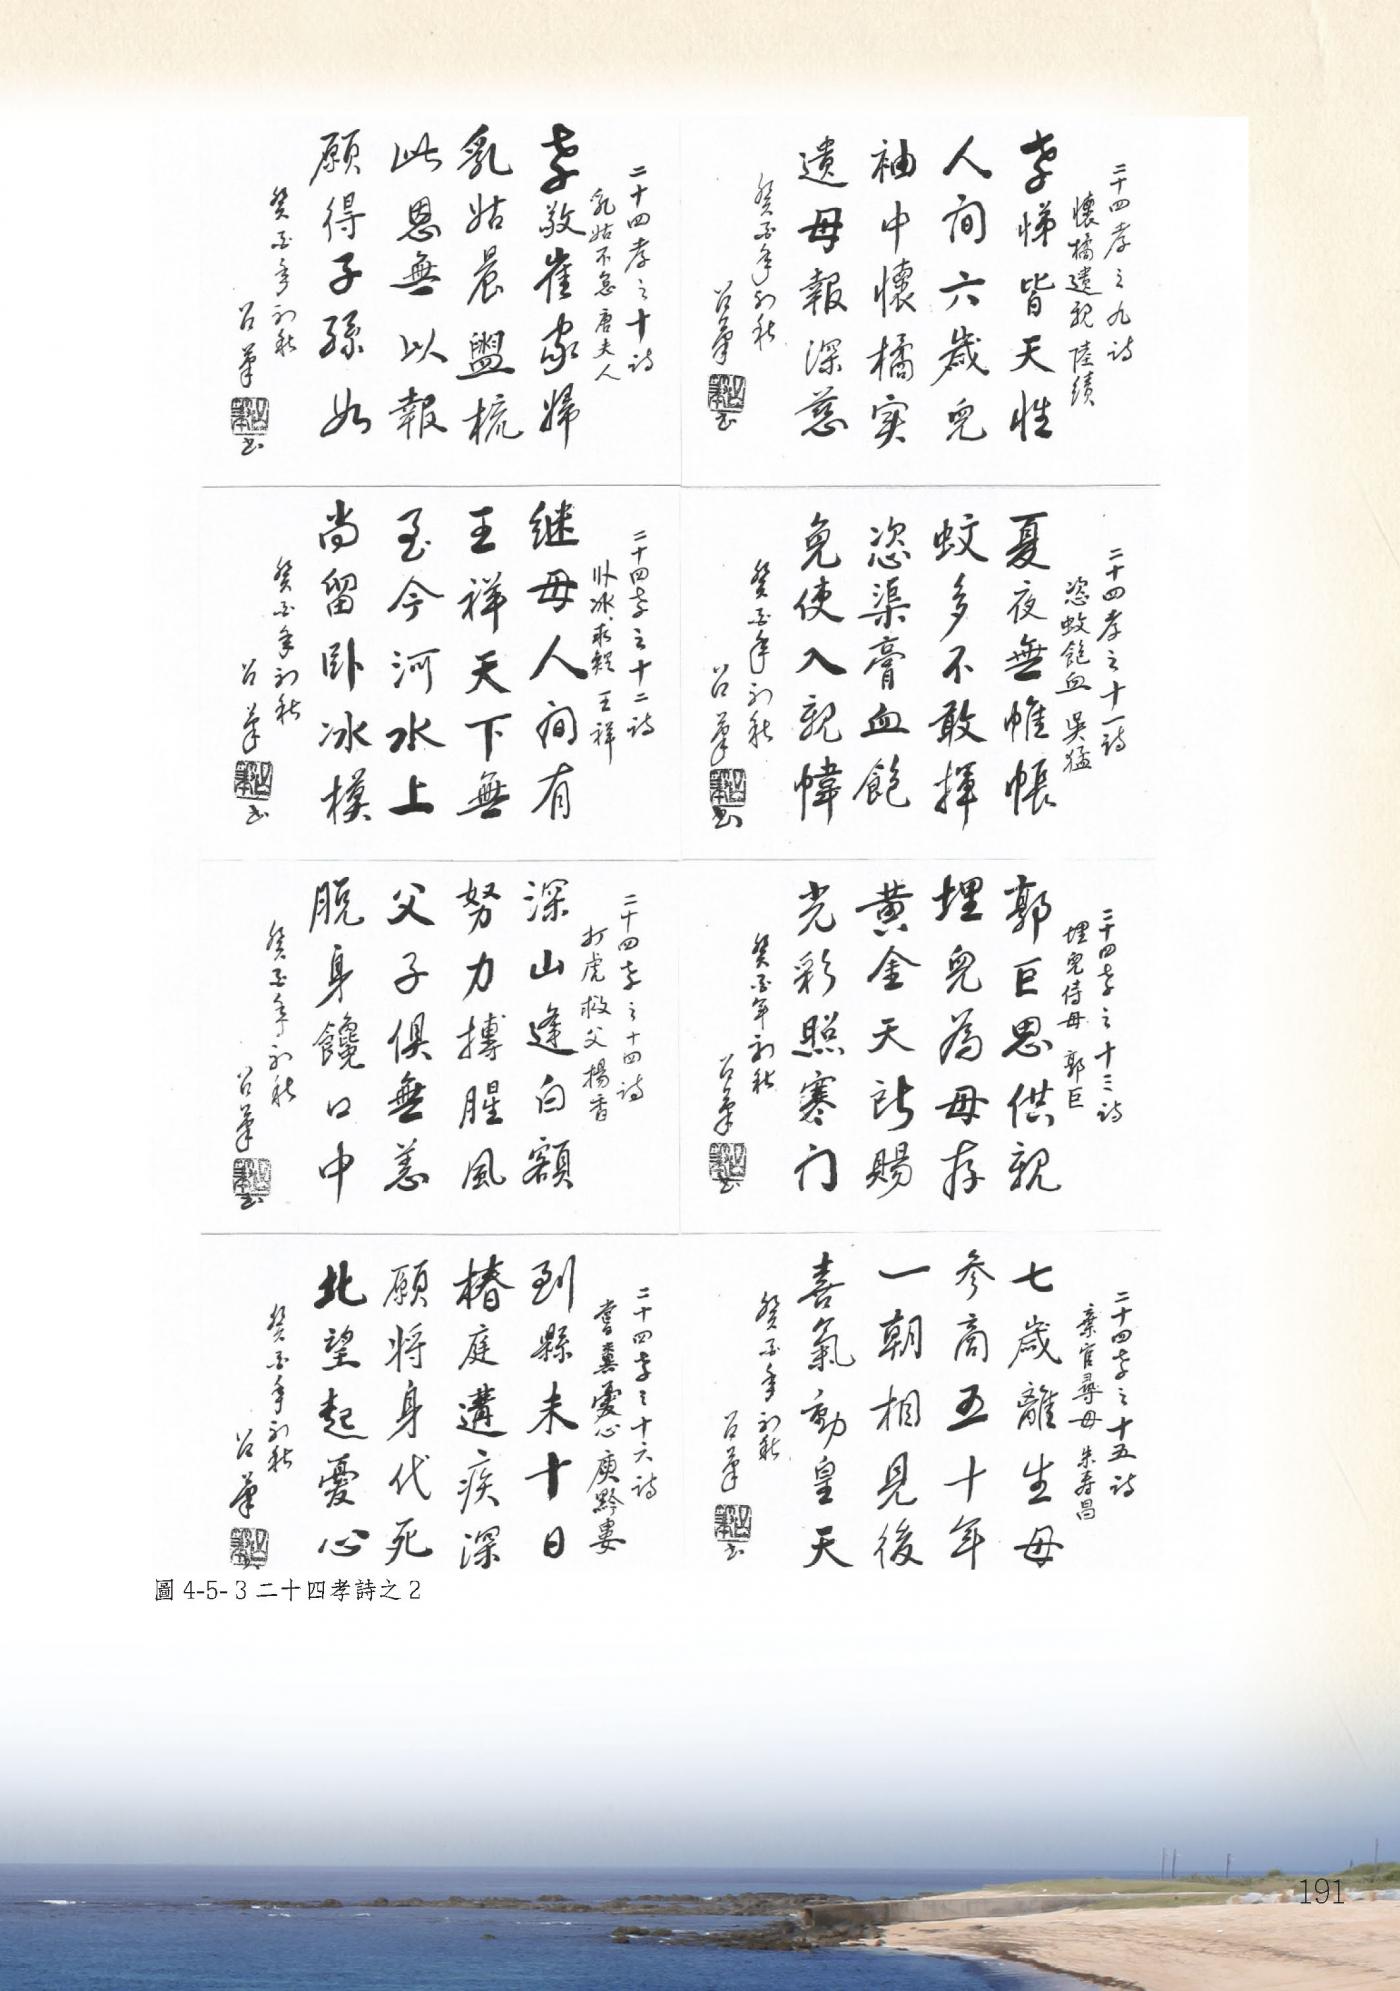 二十四孝之九詩
懷橘遺親 陸績
孝悌皆天性
人間六歲兒
袖中懷橘實
遺母報深慈
癸酉年初秋
呂筆
書
二十四孝之十詩
乳姑不怠 唐夫人
孝敬崔家婦
乳姑晨盥梳
此恩無以報
願得子孫如
癸酉年初秋
呂筆
書
二十四孝之十一詩
恣蚊飽血 吳猛
夏夜無帷帳
蚊多不敢揮
恣渠膏血飽
免使入親幃
癸酉年初秋
呂筆
書
二十四孝之十二詩
臥冰求鯉 王祥
继母人間有
王祥天下無
至今河水上
尚留卧冰模
癸酉年初秋
呂筆
書
二十四孝之十三詩
埋兒侍母 郭巨
郭巨思供親
埋兒為母存
黃金天所賜
光彩照寒门
癸酉年初秋
呂筆
書
二十四孝之十四詩
打虎救父 楊香
深山逢白額
努力搏腥風
父子俱無恙
脫身饞口中
癸酉年初秋
呂筆
書
二十四孝之十五詩
棄官尋母 朱壽昌
七歲離生母
參商五十年
一朝相見後
喜氣動皇天
癸酉年初秋
呂筆
書
二十四孝之十六詩
嘗糞憂心 庾黔婁
到縣未十日
椿庭遘疾深
願將身代死
北望起憂心
癸酉年初秋
呂筆
圖 4-5-3 二十四孝詩之 2
191